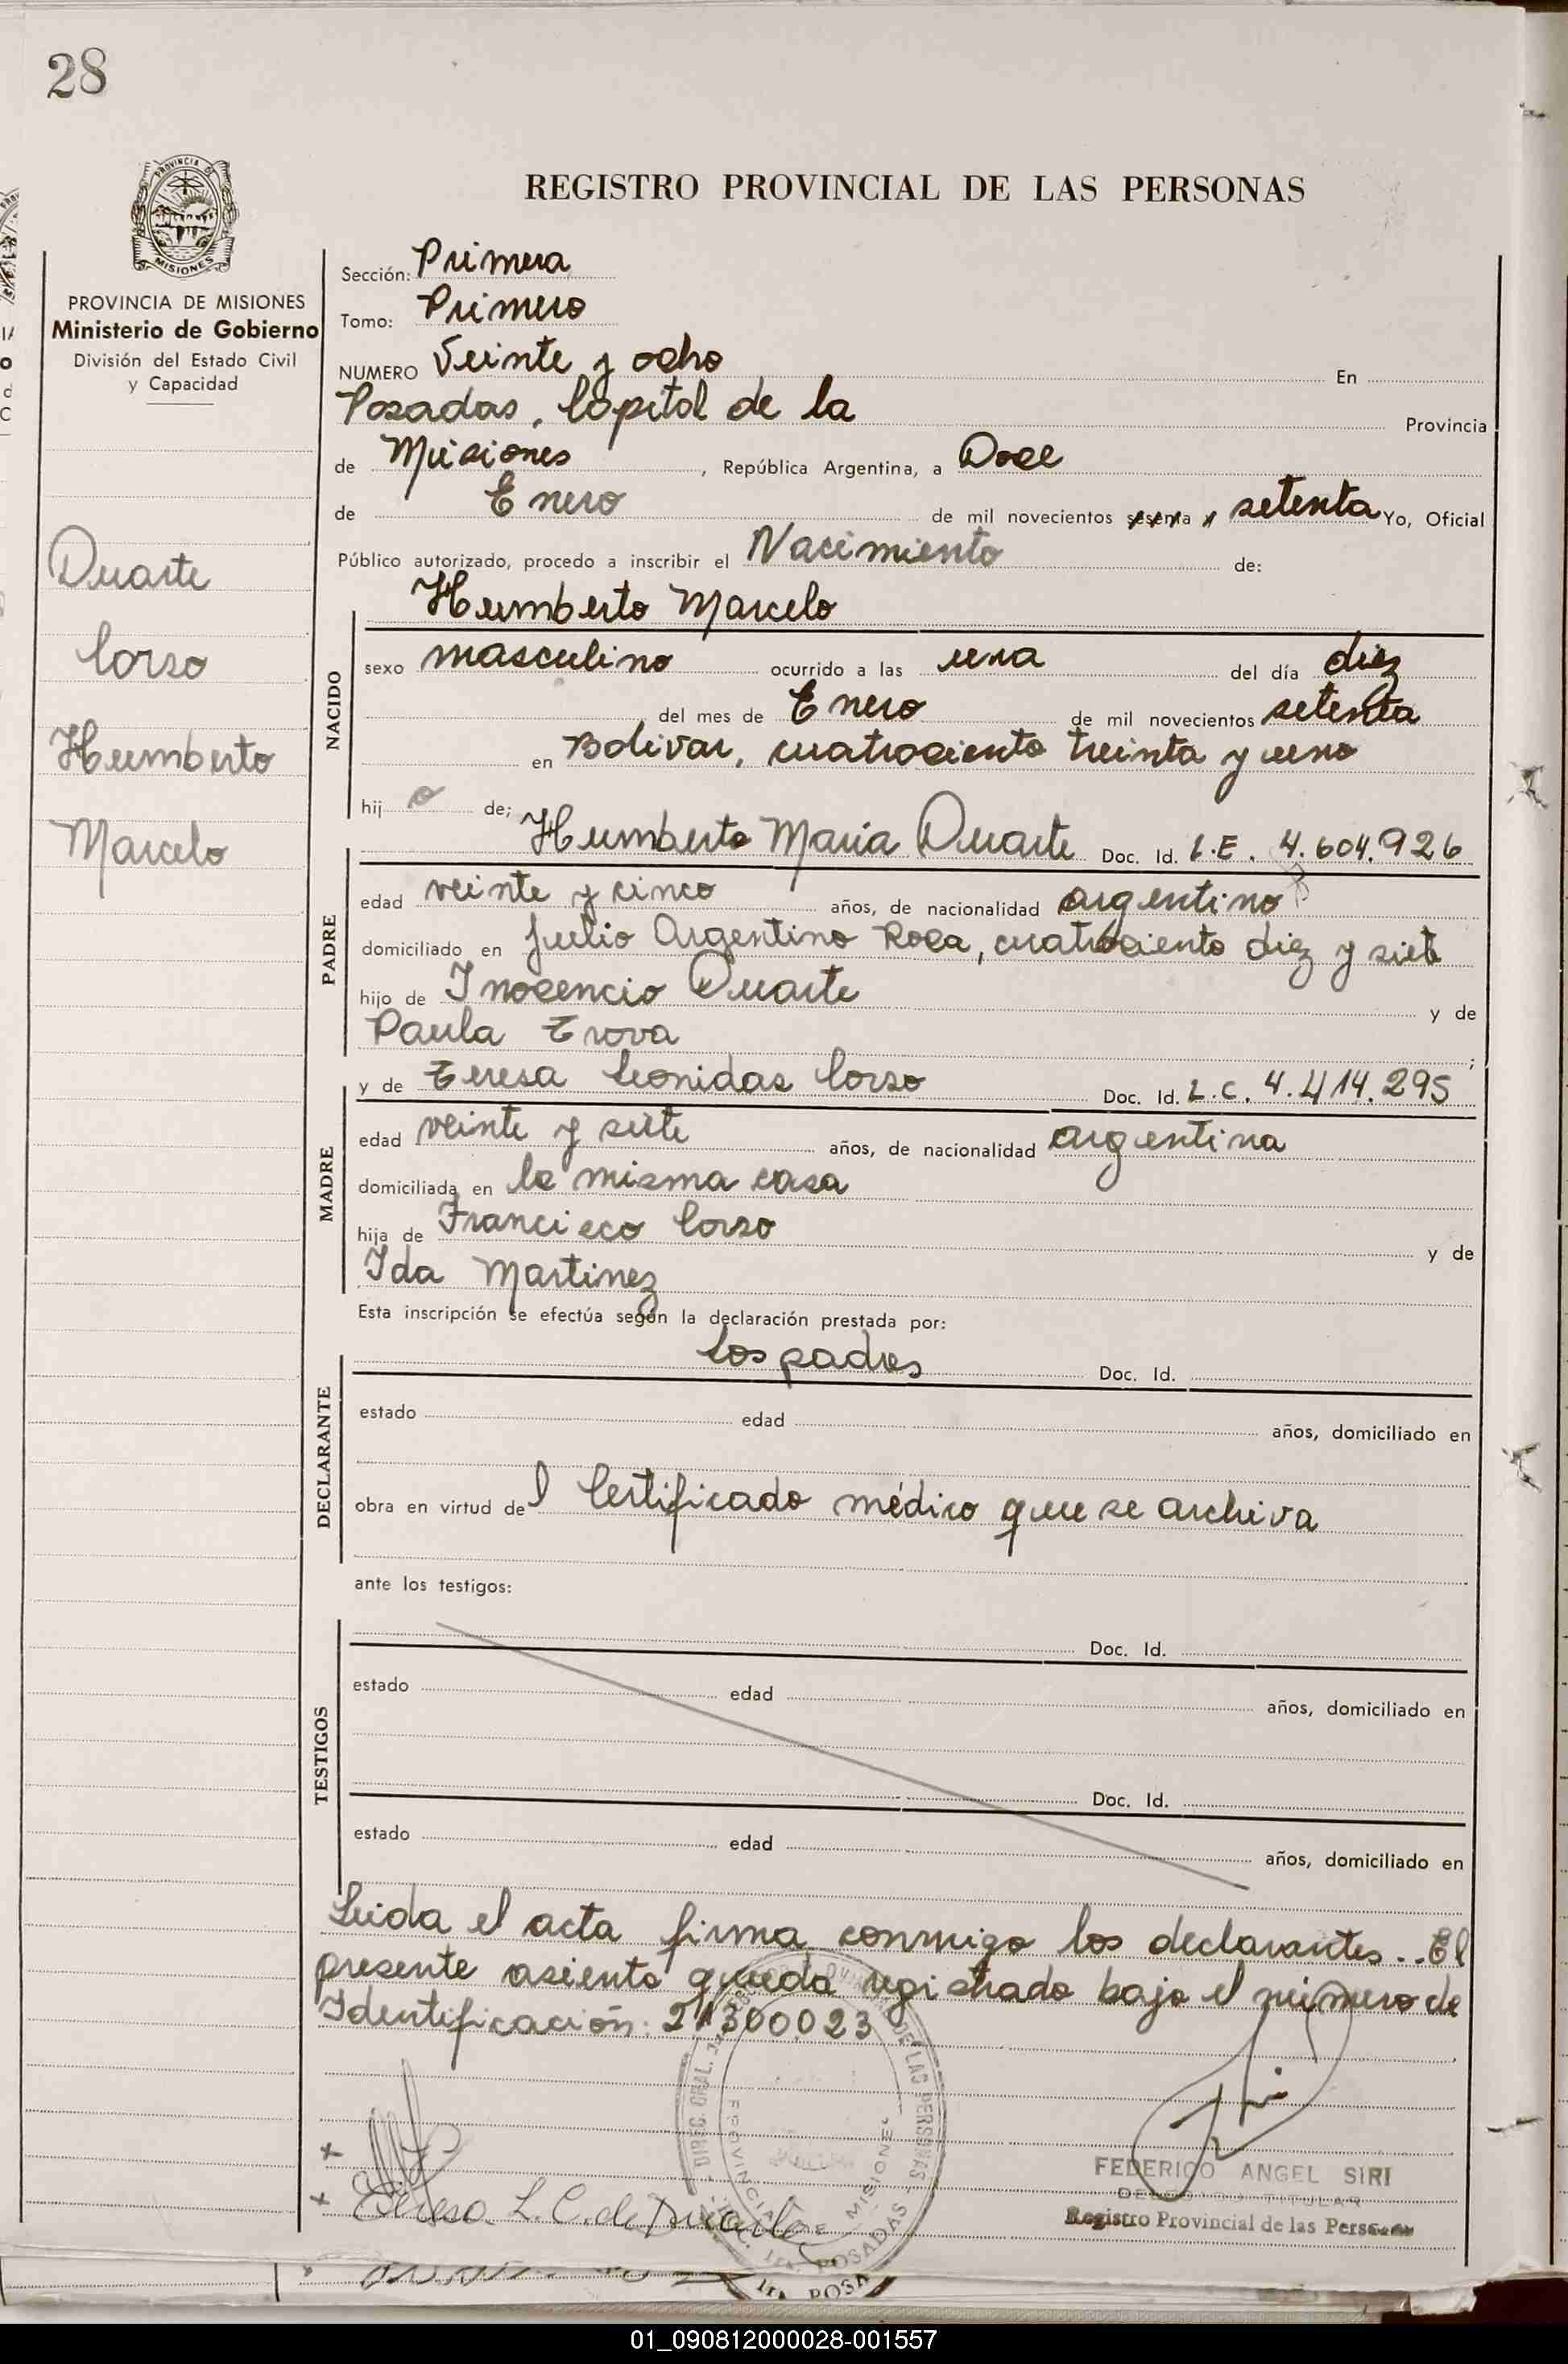 28
PROVINCIA DE
MISIONES
REGISTRO PROVINCIAL DE LAS PERSONAS
PROVINCIA DE MISIONES
Ministerio de Gobierno
División del Estado Civil
y Capacidad
Duarte
Corzo
Humberto
Marcelo
Sección: Primera
Tomo: Primero
NUMERO Veinte y ocho En
Posadas, Capital de la Provincia
de Misiones, República Argentina, a Doce
de Enero de mil novecientos sesenta y setenta Yo, Oficial
Público autorizado, procedo a inscribir el Nacimiento de:
Humberto Marcelo
NACIDO
sexo masculino ocurrido a las una del día diez
del mes de Enero de mil novecientos setenta
en Bolivar, cuatrociento treinta y uno
hij o de;
Humberto Maria Duarte Doc. Id. L.E. 4.604.926
PADRE
edad veinte y cinco años, de nacionalidad argentino
domiciliado en Julio Argentino Roca, cuatrociento diez y siete
hijo de Inocencio Duarte y de
Paula Trova ;
y de Teresa Leonidas Corzo Doc. Id. L.C. 4.414.295
MADRE
edad veinte y siete años, de nacionalidad argentina
domiciliada en la misma casa
hija de Francisco Corzo y de
Ida Martinez
Esta inscripción se efectúa según la declaración prestada por:
Los padres Doc. Id.
DECLARANTE
estado edad años, domiciliado en
obra en virtud de l Certificado médico que se archiva
ante los testigos:
Doc. Id.
TESTIGOS
estado edad años, domiciliado en
Doc. Id.
estado edad años, domiciliado en
Leida el acta firma conmigo los declarantes.. El
presente asiento queda registrado bajo el número de
Identificación: 21300023
Teresa L. C. de Duarte
FEDERICO ANGEL SIRI
DELEGADO TITULAR
Registro Provincial de las Personas
01_090812000028-001557